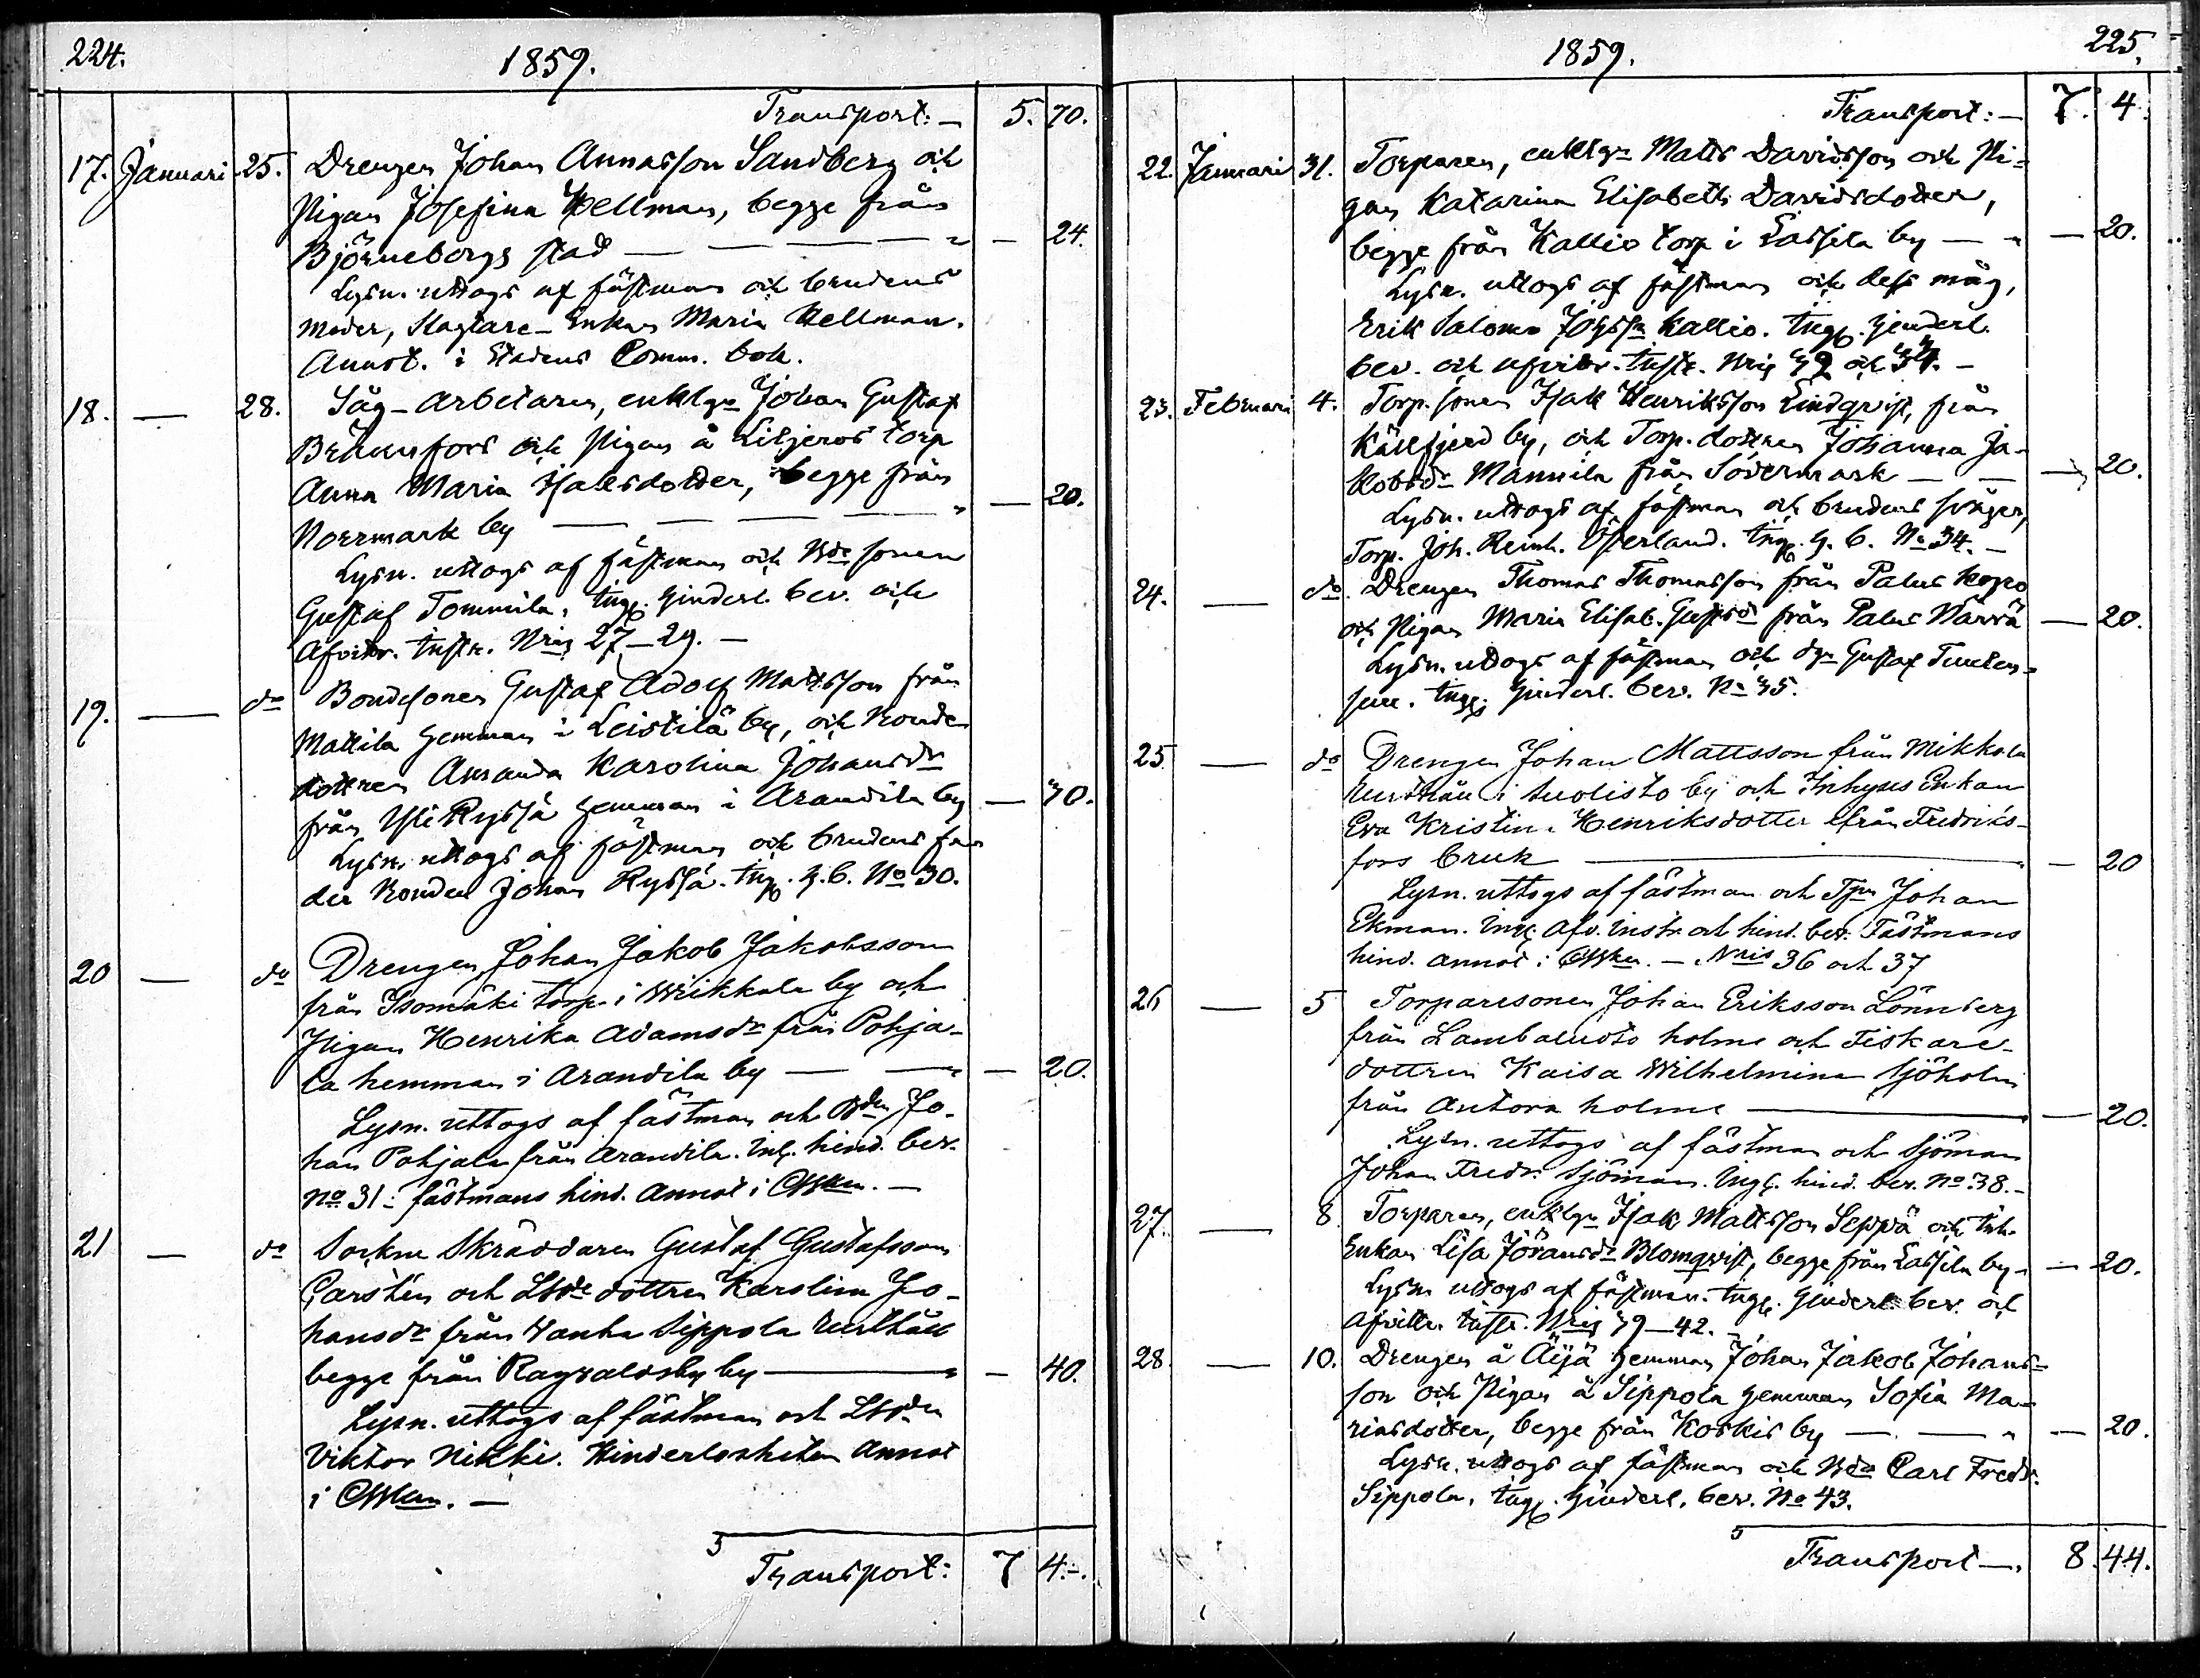 224.
1859.
Transport: — 5. 70.
17. Januari 25. Drengen Johan Annasson Sandberg och
Pigan Josefina Hellman, begge från
Björneborgs stad — — — — „ — 24.
Lysn. uttogs af fästman och brudens
moder, Slagtare-Enkan Maria Hellman.
Annot. i Stadens Comm. bok.
18. — 28. Såg-Arbetaren, enklgn Johan Gustaf
och Pigan å Liljeros torp
Anna Maria Isaksdotter, begge från
Norrmark by — — — — „ — 20.
Lysn. uttogs af fästman och Bdesonen
Gustaf Tommila. Ingg. hinderl. bev. och
Afvittr. Instr. Nris 27–29. —
19. — do Bondesonen Gustaf Adolf Mattsson från
Mattila hemman i Leistilä by, och Bonde
dottren Amanda Karolina Johansdr
från Yli Ryssä hemman i Arandila by — 70.
Lysn. uttogs af fästman och brudens fa-
der Bonden Johan Ryssä. Ingg. h. b. No 30.
20 — do Drengen Johan Jakob Jakobsson
från Isomäki torp i Wrikkala by och
Pigan Henrika Adamsdr från Pohja-
la hemman i Arandila by — — „ — 20.
Lysn. uttogs af fästman och Bden Jo-
han Pohjala från Arandila. Ing. hind. bev.
No 31: fästmans hind. annot i
21 — do Sockne Skräddaren Gustaf Gustafsson
Carstén och Lbde dottren Karolina Jo-
hansdr från Wanha Sippola Rusthåll
begge från Ragvaldsby by — „ — 40.
Lysn. uttogs af fästman och Lbden
Viktor Nikki. Hinderlösheten annot
i
Transport: 7 4.–.
225.
1859.
Transport: — 7. 4.
22. Januari 31. Torparen, enklgn Matts Davidsson och Pi-
gan Katarina Elisabeth Davidsdotter,
begge från Kallio torp i Lassila by — „ — 20.
Lysn. uttogs af fästman och dess måg,
Erik Salomo Kallio. Ingg. hinderl.
bev. och afvittr. Instr. Nris 32 och 33. —
23. Februari 4. Torp. sonen Isak Henriksson Lindqvist, från
Källfjerd by, och Torp. dottren Johanna Ja-
kobsdr Mannila från Södermark — — „ 20.
Lysn. uttogs af fästman och brudens svåger,
Torp. Joh. Reinh. Österlund. Ingg. h. b. No 34. —
24. — do. Drengen Thomas Thomasson från Palus
och Pigan Maria Elisab. Gustsdr från Palus Närvä — 20.
Lysn. uttogs af fästman och dgn Gustaf
Ingg. hinderl. bev. No 35.
25 — do Drengen Johan Mattsson från Mikkola
Rusthåll i Suolisto by och Inhyses Enkan
Eva Kristina Henriksdotter från Fredriks-
fors bruk — „ — 20
Lysn. uttogs af fästman och Johan
Ekman. Ing. Afv. instr. och hind. bev. Fästmans
hind. annot i — Nris 36 och 37
26 — 5 Torparesonen Johan Eriksson Lönnberg
från Lambaluoto holme och Fiskare-
dottren Kaisa Wilhelmina Sjöholm
från Antora holme — „ — 20.
Lysn. uttogs af fästman och Sjöman
Johan Fredr. Sjöman. Ingg. hind. bev. No 38. —
27. — 8. Torparen, enklgn Isak Mattsson Seppä och Inh.
Enkan Lisa Göransdr Blomqvist, begge från Lassila by — „ — 20.
Lysn. uttogs af fästman. Ingg. hinderl. bev. och
Afvittr. Instr. Nris 39–42. —
28 — 10. Drengen å Äijä hemman Johan Jakob Johans-
son och Pigan å Sippola hemman Sofia Ma-
riasdotter, begge från Koskis by — — „ — 20.
Lysn. uttogs af fästman och Bdn Carl Fredr.
Sippola. Ingg. hinderl. bev. No 43.
Transport —. 8. 44.